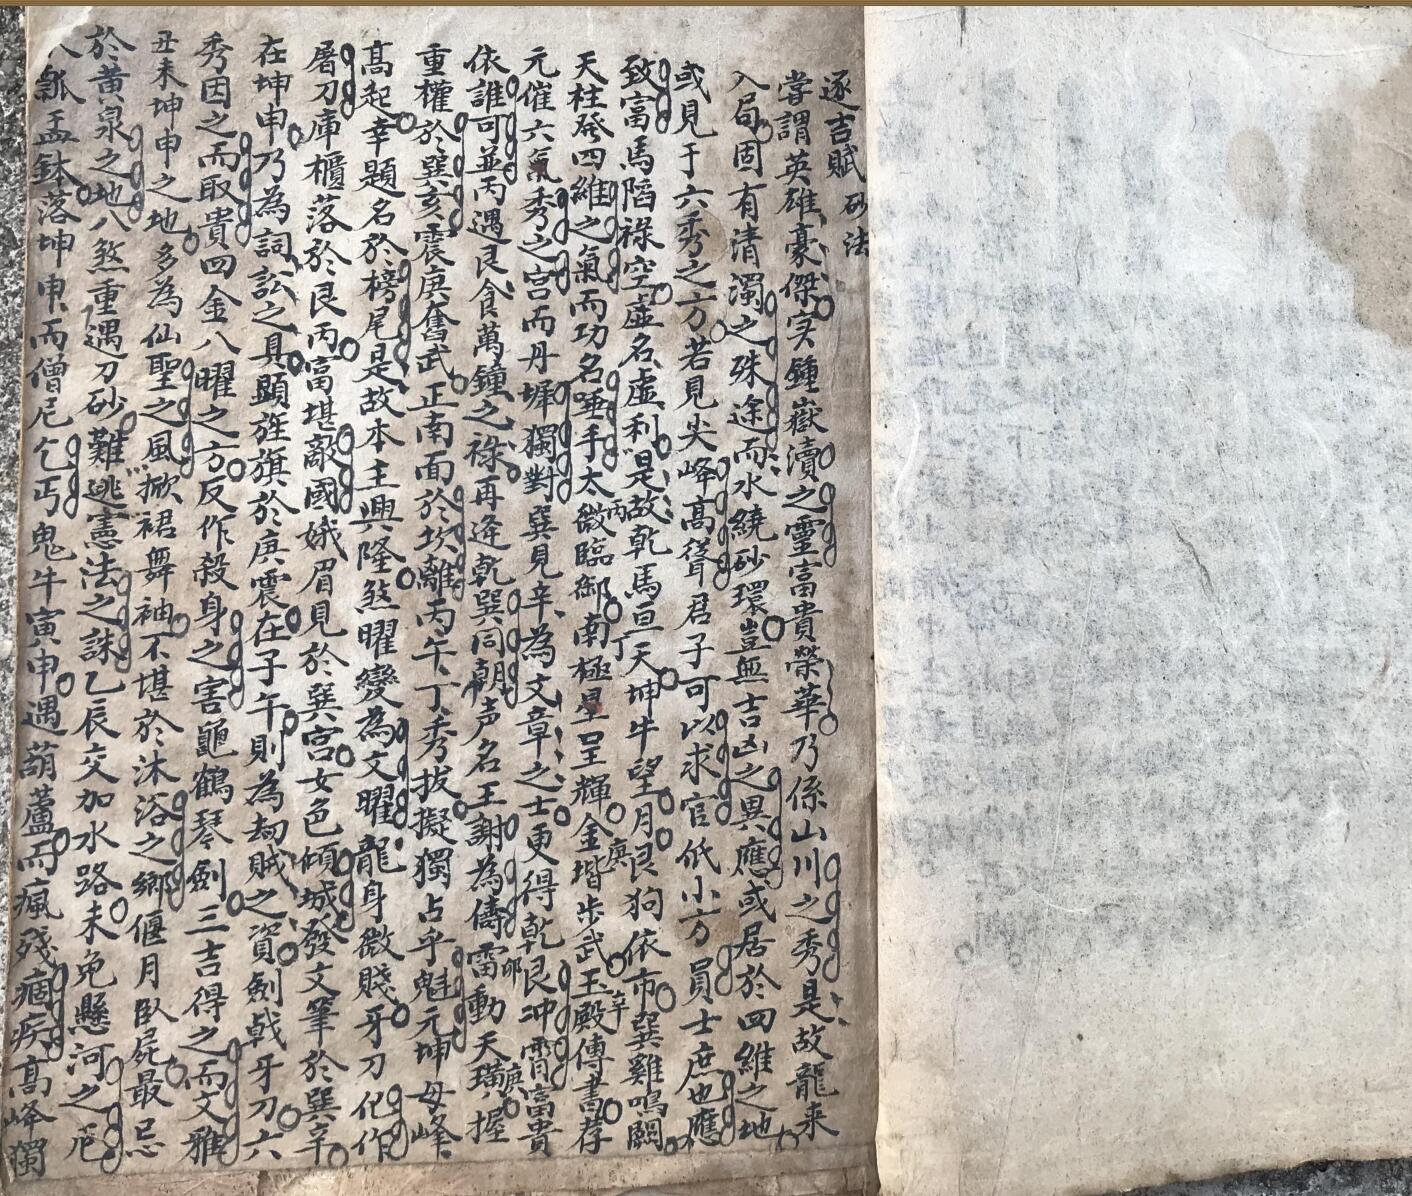 逐吉賦 砂法
嘗謂英雄豪傑实鍾嶽瀆之靈富貴榮華乃係山川之秀是故龍来
入局固有清濁之殊途而水繞砂環豈無吉凶之異應或居於四維之地
或見于六秀之方若見尖峰高聳君子可以求官低小方員士庶也應
致富馬陷祿空虛名虛利是故乾馬亘天坤牛望月艮狗依市巽雞鳴闕
天柱發四維之氣而功名唾手太微丙臨御南極丁星呈輝金堦庚步武玉殿辛傳書荐
元催六氣秀之宮而丹墀獨對巽見辛為文章之士更得乾艮冲霄富貴
依誰可並丙遇艮食萬鐘之祿再逢乾巽同朝声名王謝為儔雷卯動天璜庚握
重權於巽亥震庚奮武正南面於坎離丙午丁秀拔擬獨占乎魁元坤母峰
高起幸題名於榜尾是故本主興隆煞曜變為文曜龍身微賤牙刀化作
屠刀庫櫃落於艮丙富堪敵國娥眉見於巽宮女色傾城發文筆於巽辛
在坤申乃為詞訟之具顕旌旗於庚震在子午則為劫賊之資劍戟牙刀六
秀因之而取貴四金八曜之方反作殺身之害龜鶴琴劍三吉得之而文雅
丑未坤申之地多為仙聖之風掀裙舞袖不堪於沐浴之鄉偃月臥屍最忌
於黃泉之地八煞重遇刀砂難逃憲法之誅乙辰交加水路未免懸河之厄
瓢盂鉢落坤申而僧尼乞丐鬼牛寅申遇葫蘆而瘋殘痼疾高峰獨